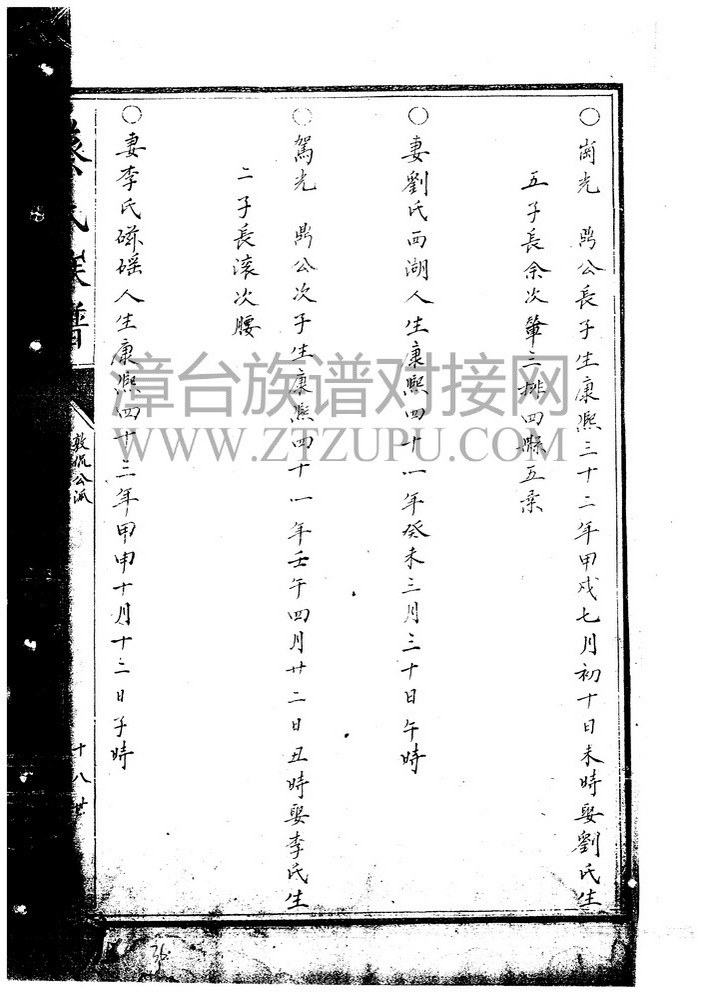 〇崗光 鼎公長子生康熙三十二年甲戌七月初十日未時娶劉氏生
五子長余次肇三排四縣五柔
〇妻劉氏西湖人生康熙四十一年癸未三月三十日午時
〇駕光 鼎公次子生康熙四十一年壬午四月廿二日丑時娶李氏生
二子長滚次腰
〇妻李氏磁磘人生康熙四十三年甲申十月十二日子時
氏族譜
公派
十八世
漳台族谱对接网
WWW.ZTZUPU.COM